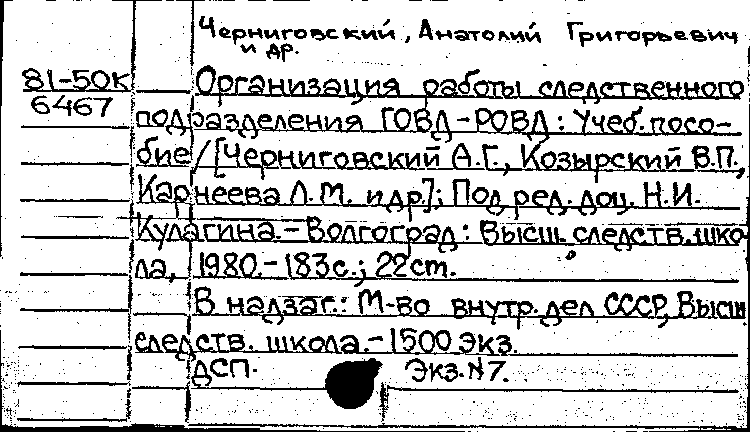 Черниговский, Анатолий Григорьевич
и др.
81-50к Организация работы следственного
6467 подразделения ГОВД-РОВД: Учеб. посо-
бие/[Черниговский А.Г., Козырский В.П.,
Карнеева Л.М. и др]; Под ред. доц. Н.И.
Кулагина.-Волгоград: Высш. следств. шко-
ла, 1980.-183с.; 22cm.
В надзаг.: М-во внутр. дел СССР, Высш
следств. школа.-1500 экз.
ДСП. Экз. №7.